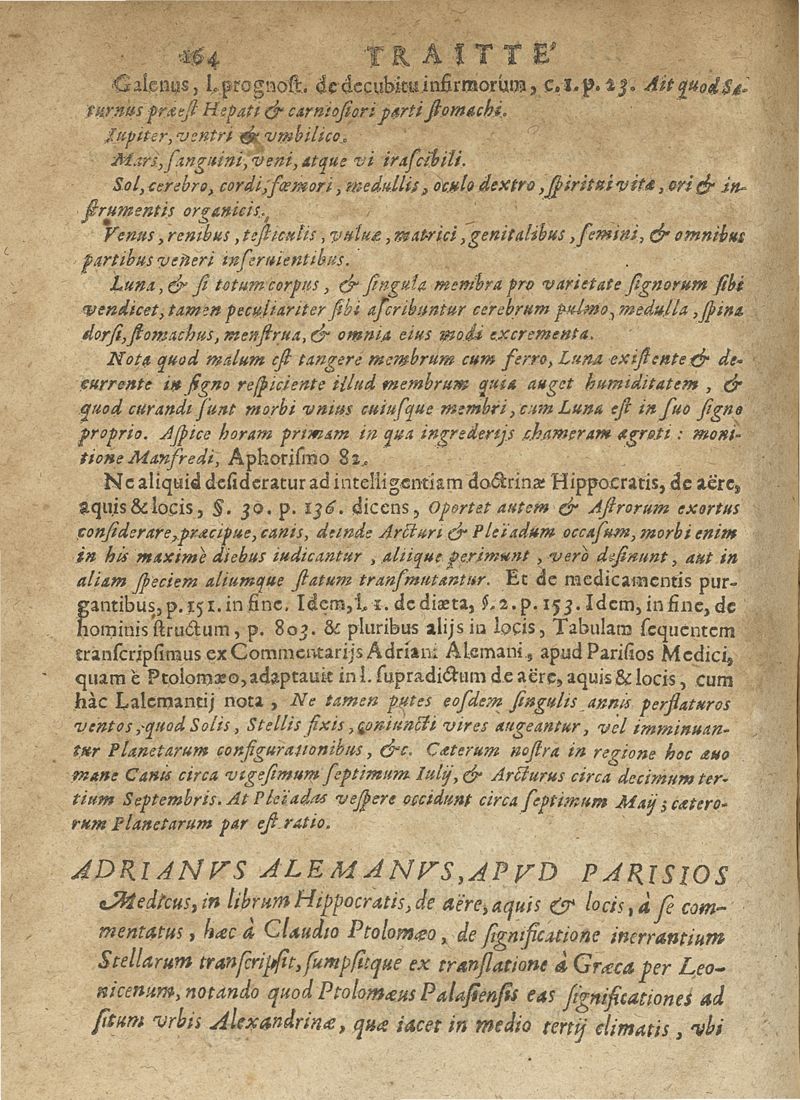 164 TRAITTE'
Galenus, l. prognost. de decubitu infirmorum, c. 1. p. 23. Ait quod Sa-
turnus præest Hepati & carniosiori parti stomachi.
Iupiter, ventri & vmbilico.
Mars, sanguini, veni, atque vi irascibili.
Sol, cerebro, cordi, fœmori, medullis, oculo dextro, spiritui vitæ, ori & in-
strumentis organicis.
Venus, renibus, testiculis, vuluæ, matrici, genitalibus, semini, & omnibus
partibus veneri inseruientibus.
Luna, & si totum corpus, & singula membra pro varietate signorum sibi
vendicet, tamen peculiariter sibi ascribuntur cerebrum pulmo, medulla, spina
dorsi, stomachus, menstrua, & omnia eius modi excrementa.
Nota quod malum est tangere membrum cum ferro, Luna existente & de-
currente in signo respiciente illud membrum quia auget humiditatem, &
quod curandi sunt morbi vnius cuiusque membri, cum Luna est in suo signo
proprio. Aspice horam primam in qua ingrederijs chameram ægroti : moni-
tione Manfredi, Aphorismo 82.
Ne aliquid desideratur ad intelligentiam doctrinæ Hippocratis, de aëre,
aquis & locis, §. 30. p. 136. dicens, Oportet autem & Astrorum exortus
considerare, præcipue, canis, deinde Arcturi & Pleïadum occasum, morbi enim
in his maximè diebus iudicantur, aliique perimunt, verò desinunt, aut in
aliam speciem aliumque statum transmutantur. Et de medicamentis pur-
gantibus, p. 151. in fine. Idem, l. 1. de diæta, §. 2. p. 153. Idem, in fine, de
hominis structum, p. 803. & pluribus alijs in locis, Tabulam sequentem
transcripsimus ex Commentarijs Adriani Alemani, apud Parisios Medici,
quam è Ptolomæo, adaptauit in l. supradictum de aëre, aquis & locis, cum
hàc Lalemantij nota, Ne tamen putes eosdem singulis annis perflaturos
ventos, quod Solis, Stellis fixis, coniuncti vires augeantur, vel imminuan-
tur Planetarum configurationibus, &c. Cæterum nostra in regione hoc æuo
mane Canis circa vigesimum septimum Iulij, & Arcturus circa decimum ter-
tium Septembris. At Pleïadas vespere occidunt circa septimum Maij; cætero-
rum Planetarum par est ratio.
ADRIANVS ALEMANVS, APVD PARISIOS
Medicus, in librum Hippocratis, de aëre, aquis & locis, à se com-
mentatus, hæc à Claudio Ptolomæo, de significatione inerrantium
Stellarum transcripsit, sumpsitque ex translatione à Græca per Leo-
nicenum, notando quod Ptolomæus Palasiensis eas significationes ad
situm vrbis Alexandrinæ, quæ iacet in medio tertij climatis, vbi